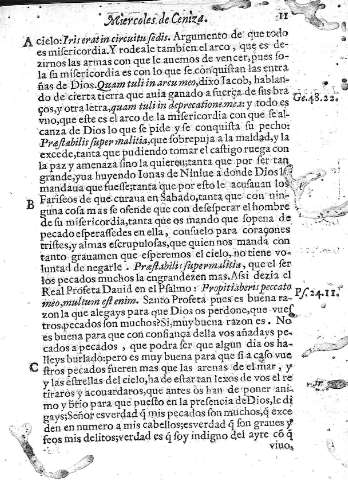 Miercoles de Ceniza. 11
A cielo: Iris erat in circuitu sedis. Argumento de que todo
es misericordia. Y rodeale tambien el arco, que es de-
zirnos las armas con que le auemos de vencer, pues so-
la su misericordia es con lo que se conquistan las entra-
ñas de Dios. Quam tuli in arcu meo, dixo Iacob, hablan-
do de cierta tierra que auia ganado a fuerça de sus bra- Ge. 48. 22.
ços, y otra letra, quam tuli in deprecatione mea: y todo es
vno, que este es el arco de la misericordia con que se al-
canza de Dios lo que se pide y se conquista su pecho:
Præstabilis super malitia, que sobrepuja a la maldad, y la
excede, tanta que pudiendo tomar el castigo ruega con
la paz y amenaza sino la quieren: tanta que por ser tan
grande, yua huyendo Ionas de Niniue a donde Dios le
mandaua que fuesse: tanta que por esto le acusauan los
Fariseos de que curaua en Sabado, tanta que con nin-
B guna cosa mas se ofende que con desesperar el hombre
de su misericordia, tanta que os mando que sopena de
pecado esperassedes en ella, consuelo para coraçones
tristes, y almas escrupulosas, que quien nos manda con
tanto grauamen que esperemos el cielo, no tiene vo-
luntad de negarle. Præstabilis super malitia, que el ser
los pecados muchos la engrandezen mas. Assi dezia el
Real Profeta Dauid en el Psalmo: Propitiaberis peccato
meo, multum est enim. Santo Profeta pues es buena ra- Ps. 24. 11.
zon la que alegays para que Dios os perdone, que vues
tros pecados son muchos? Si, muy buena razon es. No
es buena para que con confiança della vos añadays pe-
cados a pecados, que podra ser que algun dia os ha-
lleys burlado: pero es muy buena para que si a caso vue
C stros pecados fueren mas que las arenas de el mar, y
y las estrellas del cielo, ha de estar tan lexos de vos el re
tiraros y acouardaros, que antes os han de poner ani-
mo y brio para que puesto en la presencia de Dios, le di
gays; Señor es verdad q̃ mis pecados son muchos, q̃ exce
den en numero a mis cabellos; es verdad q̃ son graues y
feos mis delitos; verdad es q̃ soy indigno del ayre cõ q̃
viuo,